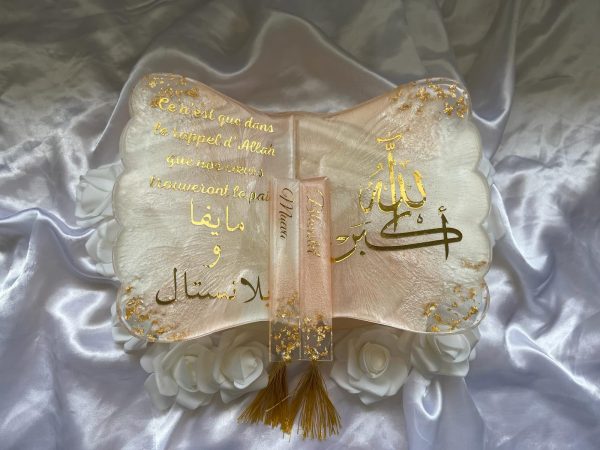 Ce n'est que dans
le rappel d'Allah
que nos cœurs
trouveront la pai
مايفا
و
بلانستال
الله
أكبر
Maeva